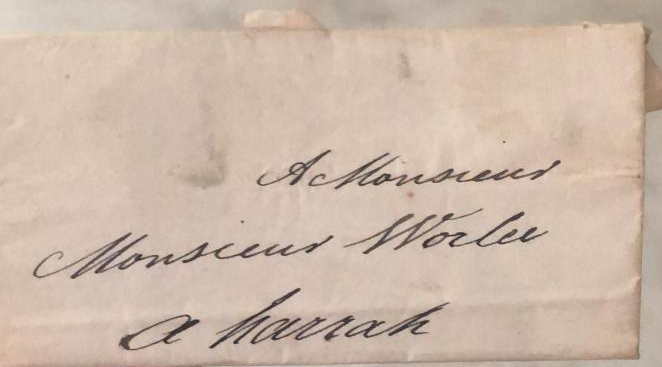 A Monsieur
Monsieur Worlee
a harrak